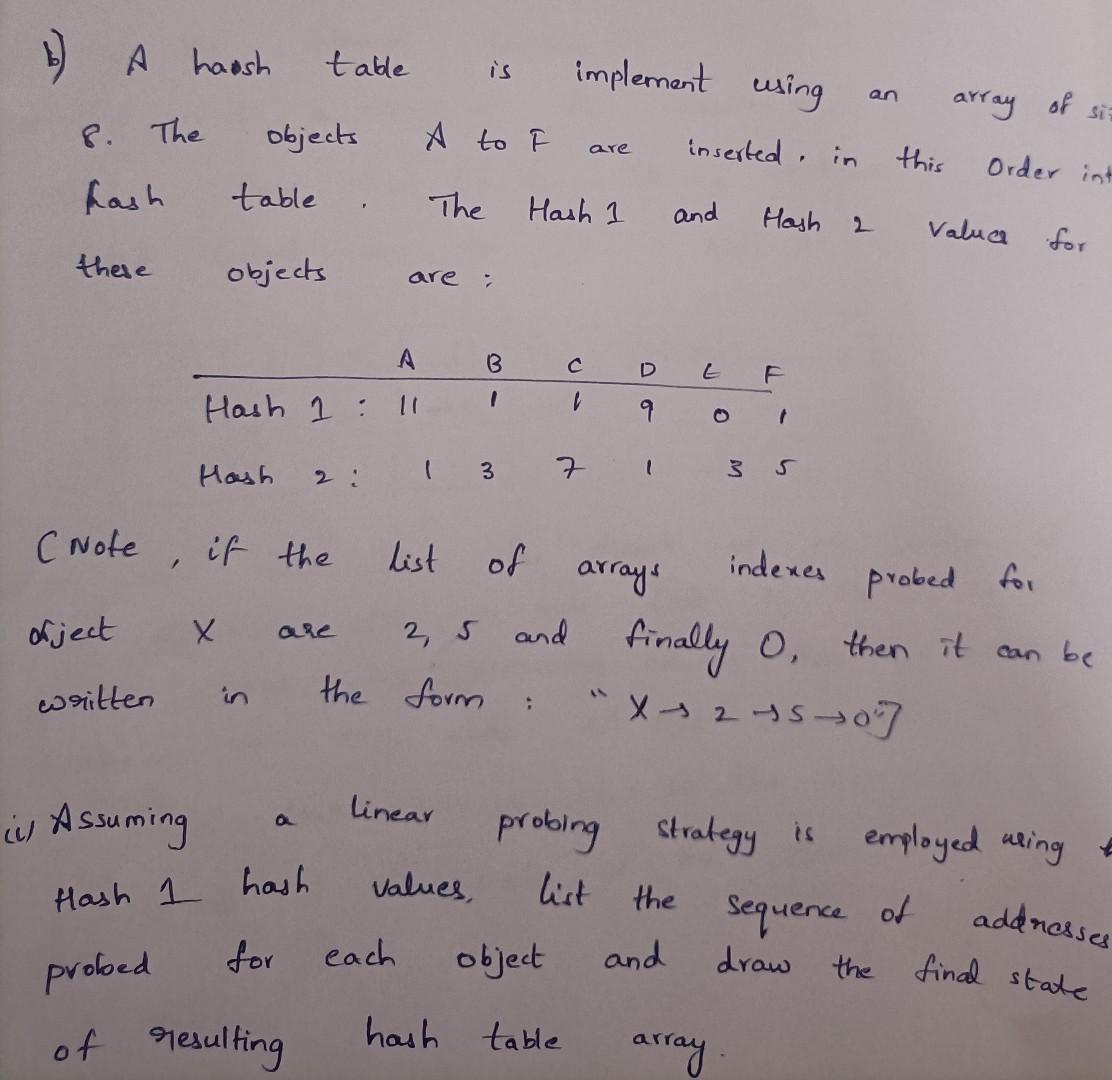 b) A hash table is implement using an array of
8. The objects A to F are inserted, in this Order
hash table. The Hash 1 and Hash 2 Values for
these objects are :
A B C D E F
Hash 1 : 11 1 1 9 0 1
Hash 2 : 1 3 7 1 3 5
(Note, if the list of arrays indexes probed for
object X are 2, 5 and finally 0, then it can be
written in the form : "X → 2 → 5 → 0"]
Assuming a linear probing strategy is employed using
Hash 1 hash values, list the sequence of addresses
probed for each object and draw the final state
of resulting hash table array.